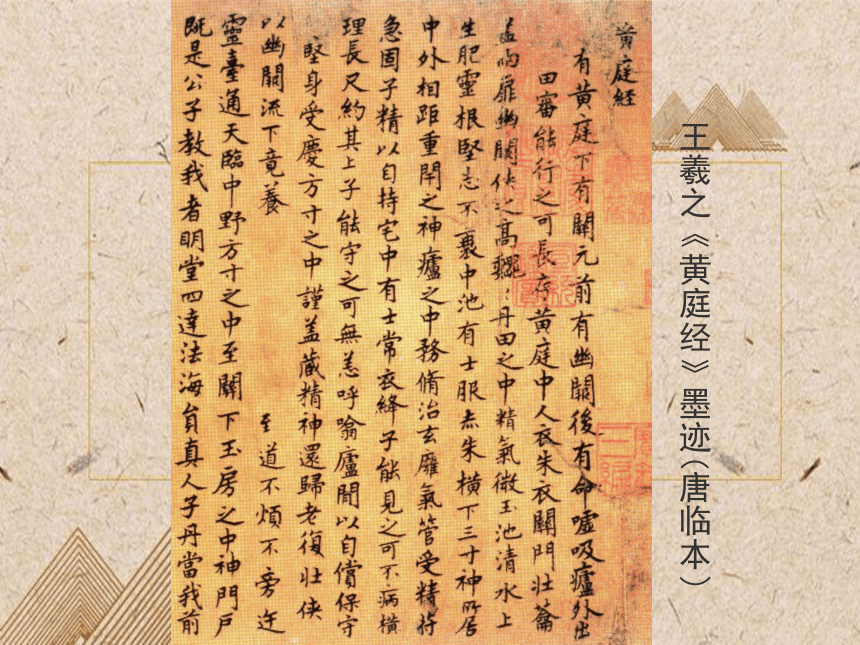 黄庭経
有黄庭下有關元前有幽闕後有命嘘吸廬外出
田審能行之可長存黄庭中人衣朱衣關門壮籥
盖两扉幽闕侠之髙巍丹田之中精氣微玉池清水上
生肥靈根堅志不衰中池有士服赤朱横下三寸神所居
中外相距重閇之神廬之中務脩治玄癕氣管受精符
急固子精以自持宅中有士常衣絳子能見之可不病横
理長尺約其上子能守之可無恙呼噏廬間以自償保守
堅身受慶方寸之中謹盖藏精神還歸老復壮侠
以幽闕流下竟養 至道不煩不旁迕
靈臺通天臨中野方寸之中至關下玉房之中神門戸
既是公子教我者明堂四達法海貟真人子丹當我前
王羲之《黄庭经》墨迹（唐临本）